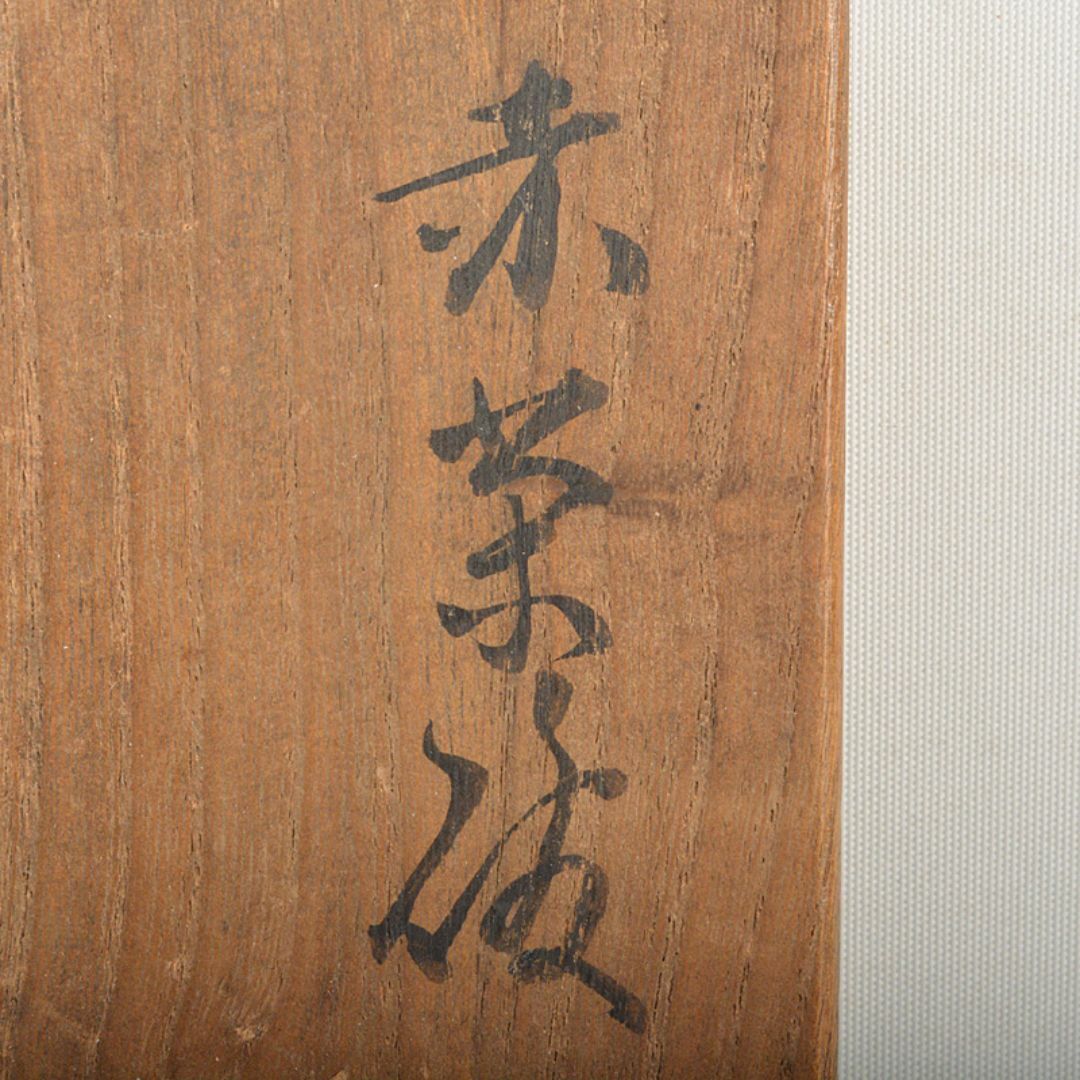 赤茶碗